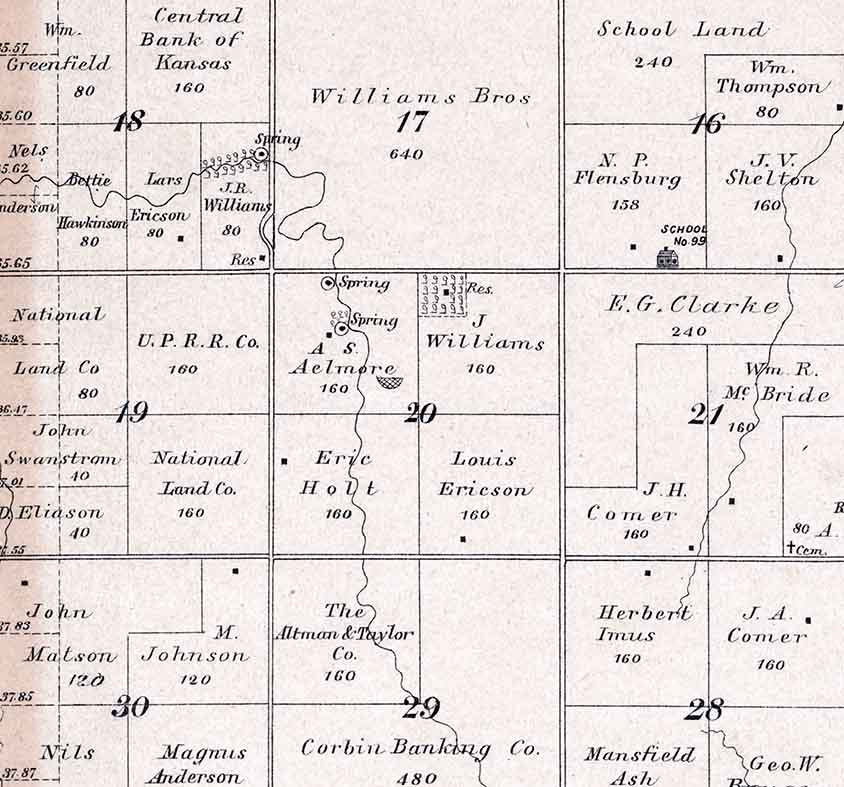 Wm.
Greenfield
80
35.57
Central
Bank of
Kansas
160
18
35.60
Nels
35.62
Anderson
Bettie
Hawkinson
80
Lars
Ericson
80
Spring
J.R.
Williams
80
Res
35.65
Williams Bros
17
640
School Land
240
Wm.
Thompson
80
16
N. P.
Flensburg
158
SCHOOL
No 99
J. V.
Shelton
160
National
35.93
Land Co
80
36.47
U. P. R. R. Co.
160
19
John
Swanstrom
40
37.01
D. Eliason
40
National
Land Co.
160
Spring
Spring
A S.
Aelmore
160
Res.
J
Williams
160
20
Eric
Holt
160
Louis
Ericson
160
E. G. Clarke
240
Wm. R.
Mc Bride
160
21
J. H.
Comer
160
80 A.
Cem.
John
37.83
Matson
120
M.
Johnson
120
37.85
30
Nils
37.87
Magnus
Anderson
The
Altman & Taylor
Co.
160
29
Corbin Banking Co.
480
Herbert
Imus
160
J. A.
Comer
160
28
Mansfield
Ash
Geo. W.